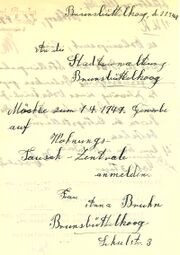 Brunsbüttelkoog, d
An die
Stadtverwaltung
Brunsbüttelkoog
Möchte zum 1.4.1949. Gewerbe
auf
Wohnungs-
Tausch-Zentrale
anmelden.
Frau Anna Bruhn
Brunsbüttelkoog
Schulstr. 3